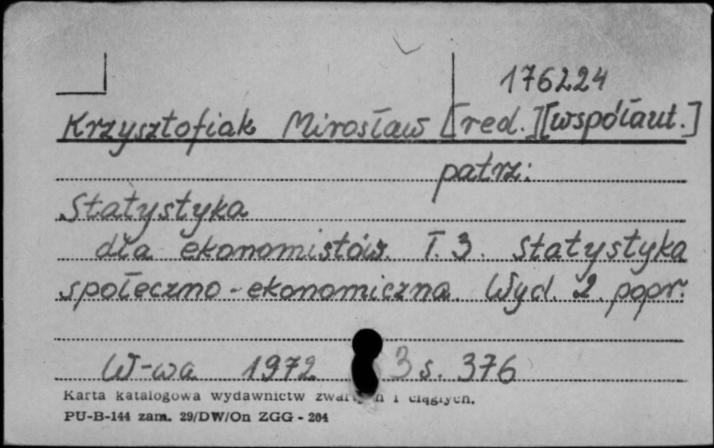 176224
Krzysztofiak Mirosław [red.][współaut.]
patrz:
Statystyka
dla ekonomistów. T. 3. Statystyka
społeczno-ekonomiczna. Wyd. 2. popr.
W-wa 1972 3 s. 376
Karta katalogowa wydawnictw i ciągłych.
PU-B-144 zam. 29/DW/On ZGG - 204